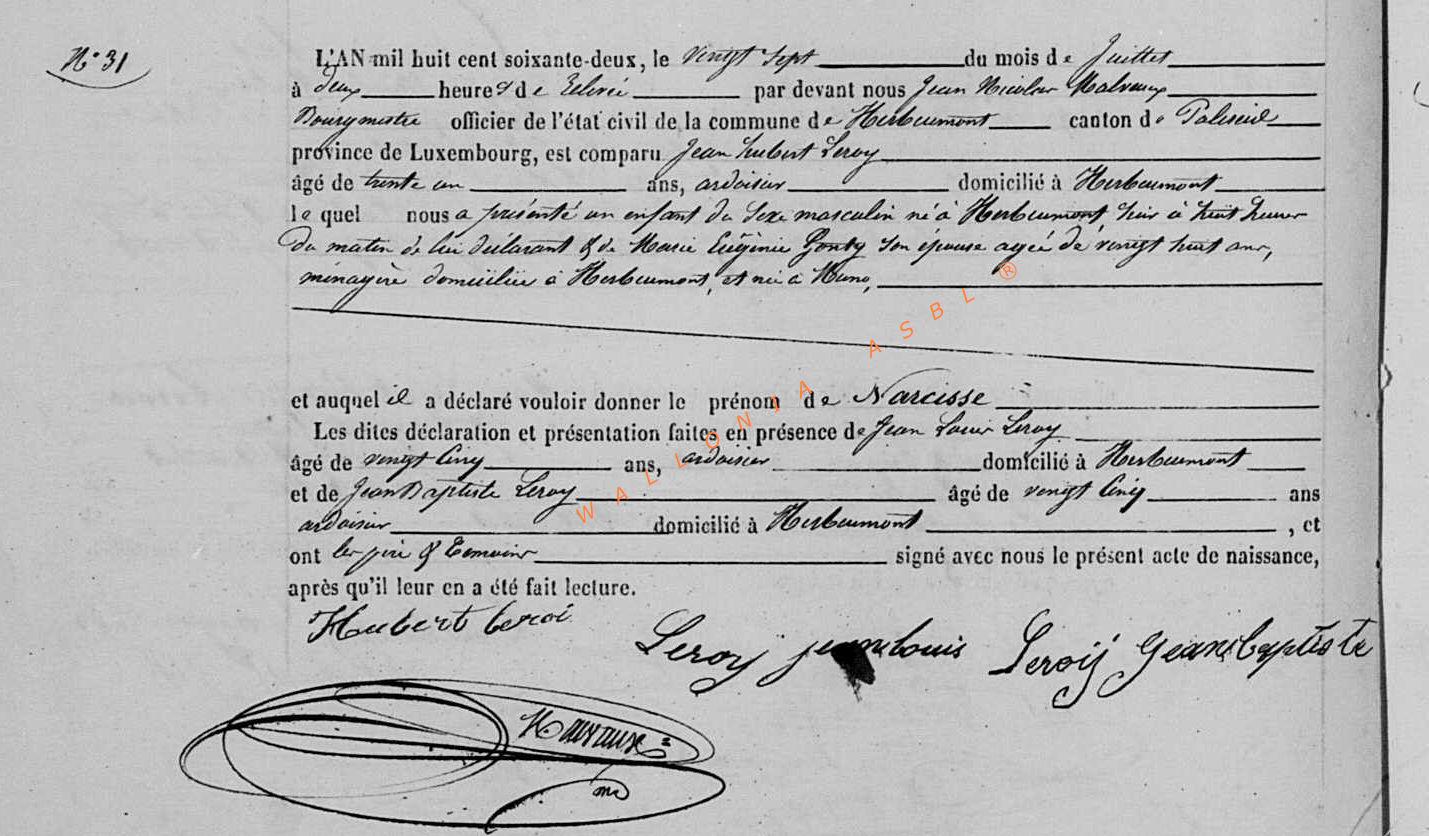 N° 31
L'AN mil huit cent soixante-deux, le vingt sept du mois de Juillet
à deux heures de relevée par devant nous Jean Nicolas Malvaux
Bourgmestre officier de l'état civil de la commune de Herbeumont canton de Paliseul
province de Luxembourg, est comparu Jean hubert Leroy
âgé de trente un ans, ardoisier domicilié à Herbeumont
le quel nous a présenté un enfant du Sexe masculin né à Herbeumont hier à huit heures
du matin de lui déclarant & de Marie Eugénie Gonty son épouse agée de vingt huit ans,
ménagère domiciliée à Herbeumont, et née à Muno,
WALLONIA ASBL ®
et auquel il a déclaré vouloir donner le prénom de Narcisse
Les dites déclaration et présentation faites en présence de Jean Louis Leroy
âgé de vingt cinq ans, ardoisier domicilié à Herbeumont
et de Jean Baptiste Leroy âgé de vingt cinq ans
ardoisier domicilié à Herbeumont , et
ont les père & témoins signé avec nous le présent acte de naissance,
après qu'il leur en a été fait lecture.
Hubert leroi
Leroy jean louis Leroÿ Jean baptiste